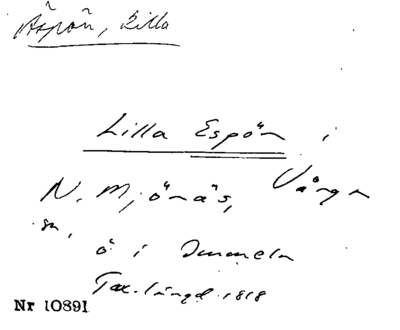 Äspön, Lilla
Lilla Espön i
N. Mjönäs, Vånga
sn,
ö i Immeln
Tax.längd 1818
Nr 10891